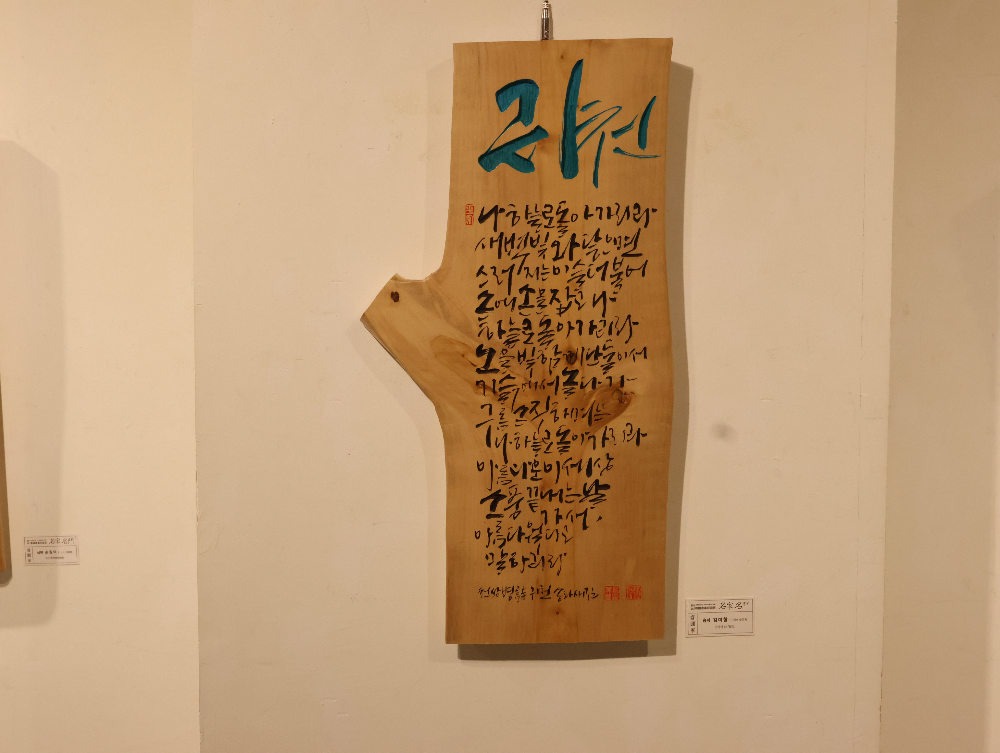 귀천
나 하늘로 돌아가리라
새벽빛 와 닿으면
스러지는 이슬 더불어
손에 손을 잡고 나
하늘로 돌아가리라
노을빛 함께 단둘이서
기슭에서 놀다가
구름 손짓하며는
나 하늘로 돌아가리라
아름다운 이 세상
소풍 끝내는 날
가서,
아름다웠다고
말하리라
천상병 귀천